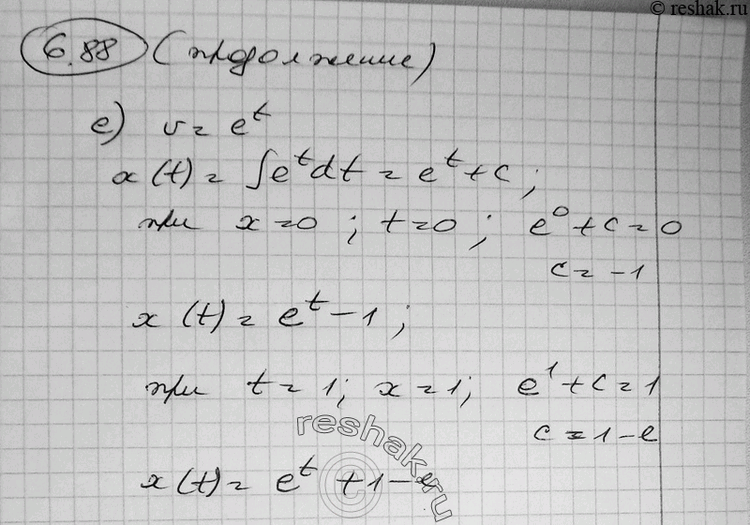 © reshak.ru
6.88 (продолжение)
е) v = e^t
x(t) = ∫e^t dt = e^t + c;
при x = 0; t = 0; e^0 + c = 0
c = -1
x(t) = e^t - 1;
при t = 1; x = 1; e^1 + c = 1
c = 1 - e
x(t) = e^t + 1 - e
reshak.ru
©